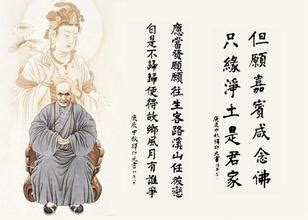 但願嘉賓咸念佛
只緣淨土是君家
應當發願願往生客路溪山任彼戀
自是不歸歸便得故鄉風月有誰爭